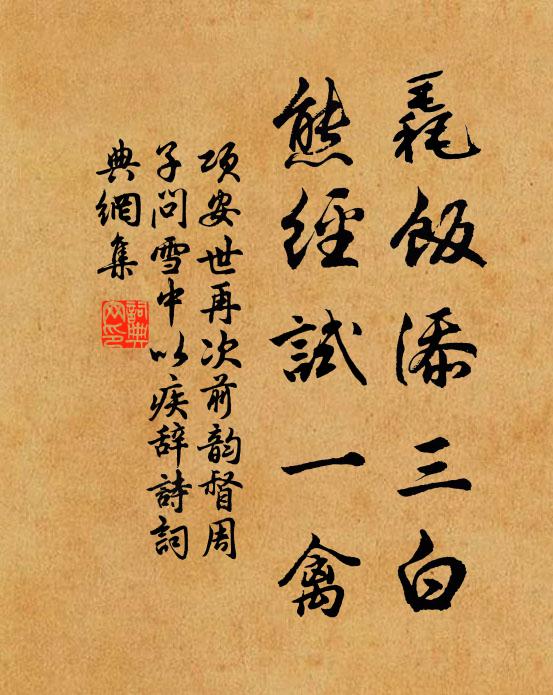 毳飯添三白
熊經試一禽
項安世再次前韵督周
子問雪中以疾辭詩詞
典網集
詞典
网印